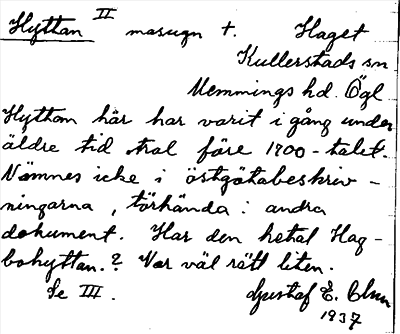 Hyttan II masugn +. Haget
Kullerstads sn
Memmings hd. Ögl
Hyttan här har varit i gång under
äldre tid trol före 1700-talet.
Nämnes icke i östgötabeskriv-
ningarna, törhända i andra
dokument. Har den hetat Hag-
bohyttan.? Var väl rätt liten.
Se III. Gustaf E. Olsson
1937